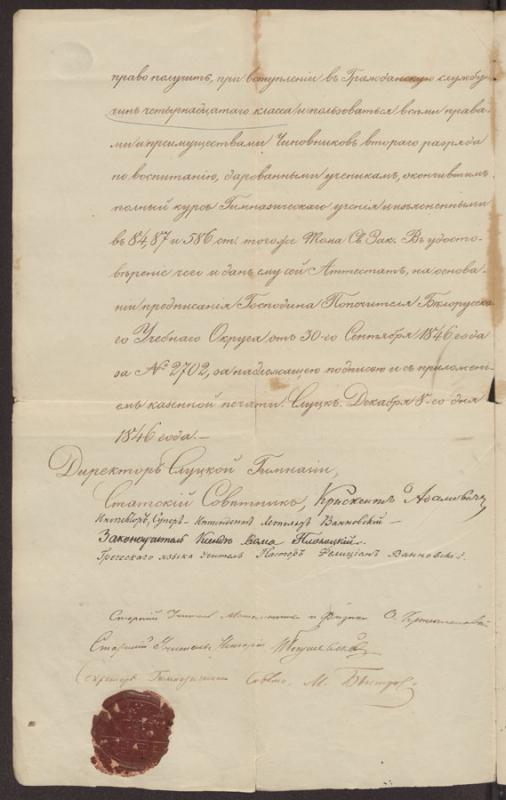 право получить, при вступленіи въ Гражданскую службу
чинъ четырнадцатаго класса и пользоваться всѣми права-
ми и преимуществами Чиновниковъ втораго разряда
по воспитанію, дарованными ученикамъ, окончившимъ
полный курсъ Гимназическаго ученія и изъясненными
въ 84, 87 и 586 ст. тогоже Тома Св. Зак. Въ удосто-
вѣреніе чего и данъ ему сей Аттестатъ, на основа-
ніи предписанія Господина Попечителя Бѣлорусска-
го Учебнаго Округа отъ 30-го Сентября 1846 года
за № 2702, за надлежащею подписью и съ приложені-
емъ казенной печати. Слуцкъ. Декабря 8-го дня
1846 года.
Директоръ Слуцкой Гимназіи,
Статскій Совѣтникъ, Крискентъ Адамовичъ
Инспекторъ, Супер-Интендентъ Ванновскій
Законоучитель Ксендзъ
Греческаго языка учитель Пасторъ Фелиціанъ Ванновскій.
Старшій Учитель Математики и Физики О.
Старшій Учитель Исторіи
Секретарь Гимназическ. М. Быстровъ